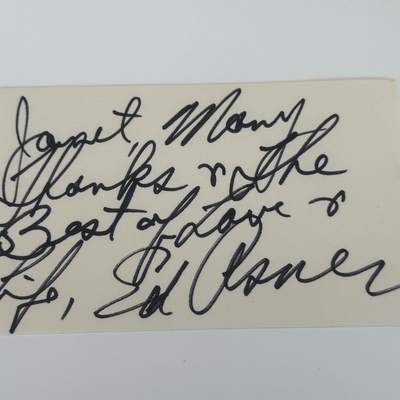 Janet, Many
Thanks & The
Best of Love &
Life, Ed Asner